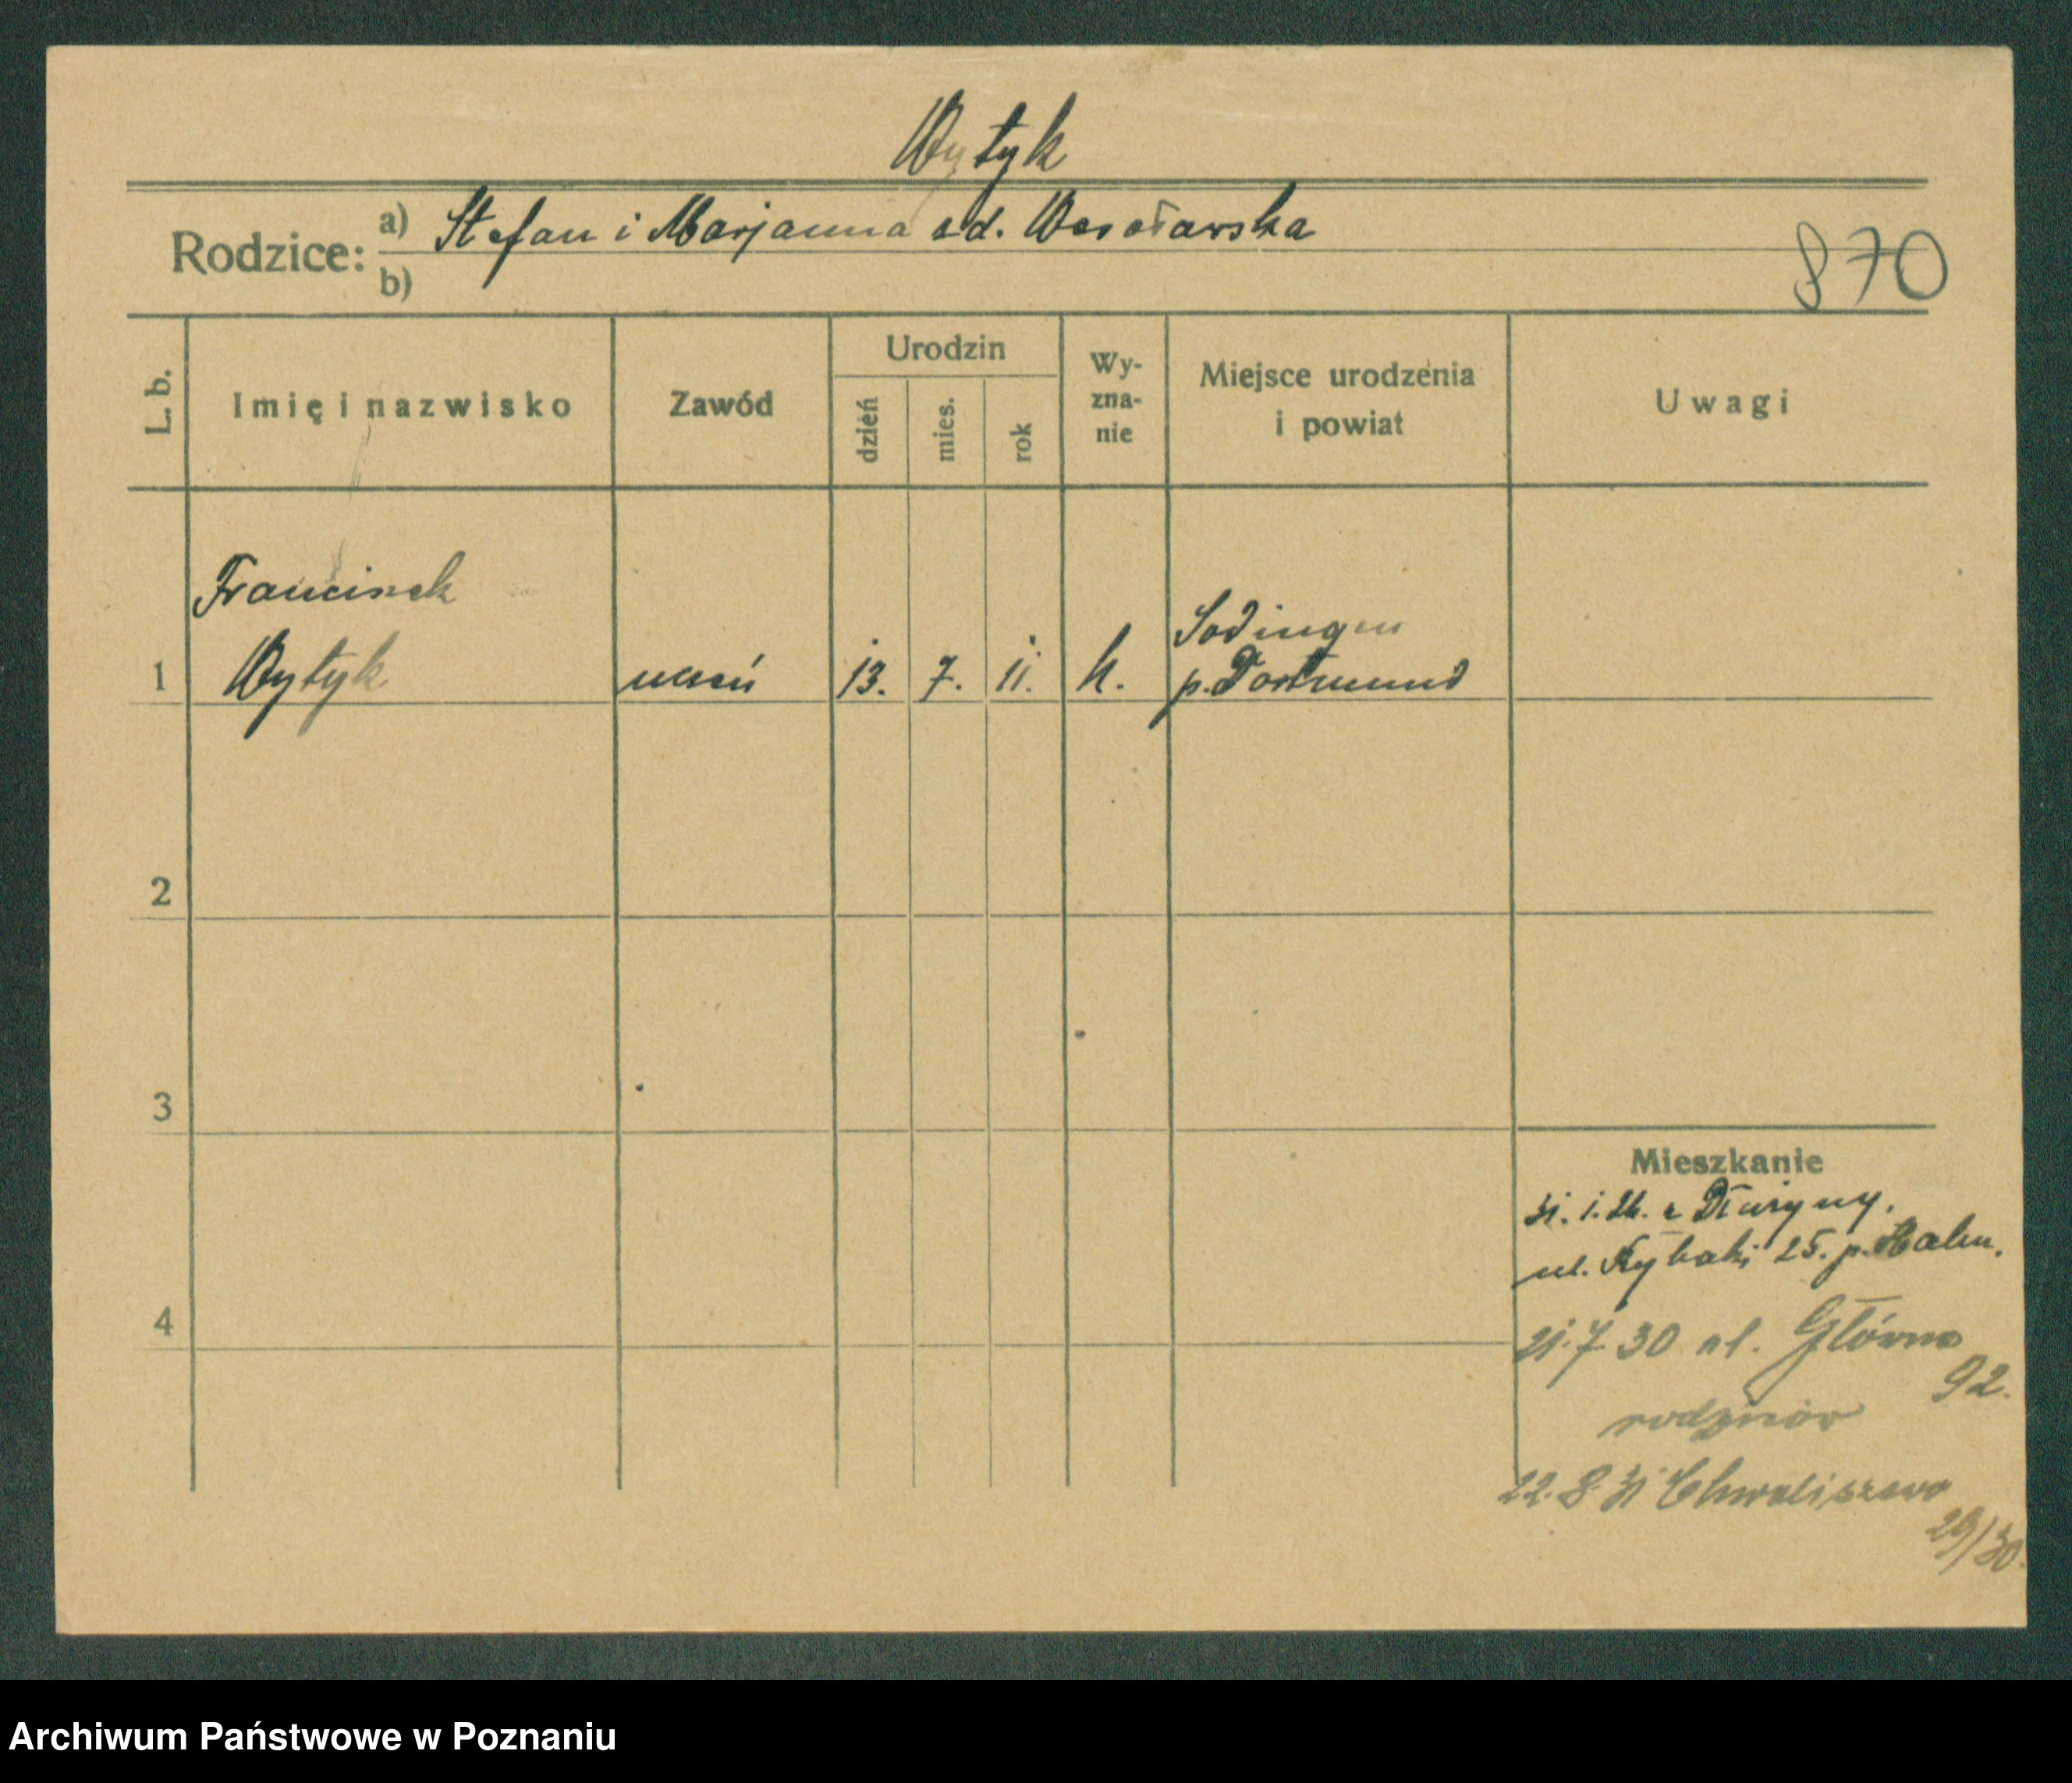 Wytyk
Rodzice: a) Stefan i Marjanna zd. Wesołowska
b)
870
L. b.
Imię i nazwisko
Zawód
Urodzin
dzień
mies.
rok
Wy-
zna-
nie
Miejsce urodzenia
i powiat
Uwagi
Franciszek
1 Wytyk uczeń 13. 7. 11. k. Sodingen
p. Dortmund
2
3
4
Mieszkanie
31. 1. 26. z Dłużyny,
ul. Rybaki 25. p.
21. 7 30 ul. Główna
92.
rodziców
22. 8. 31 Chwaliszewo
29/30.
Archiwum Państwowe w Poznaniu